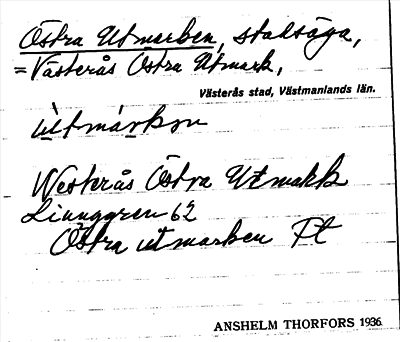 Östra Utmarken, stadsäga,
= Västerås Östra Utmark,
Västerås stad, Västmanlands län.
ùtmárkən
Westerås Östra Utmakk
Liunggren 62
Östra utmarken Pt
ANSHELM THORFORS 1936